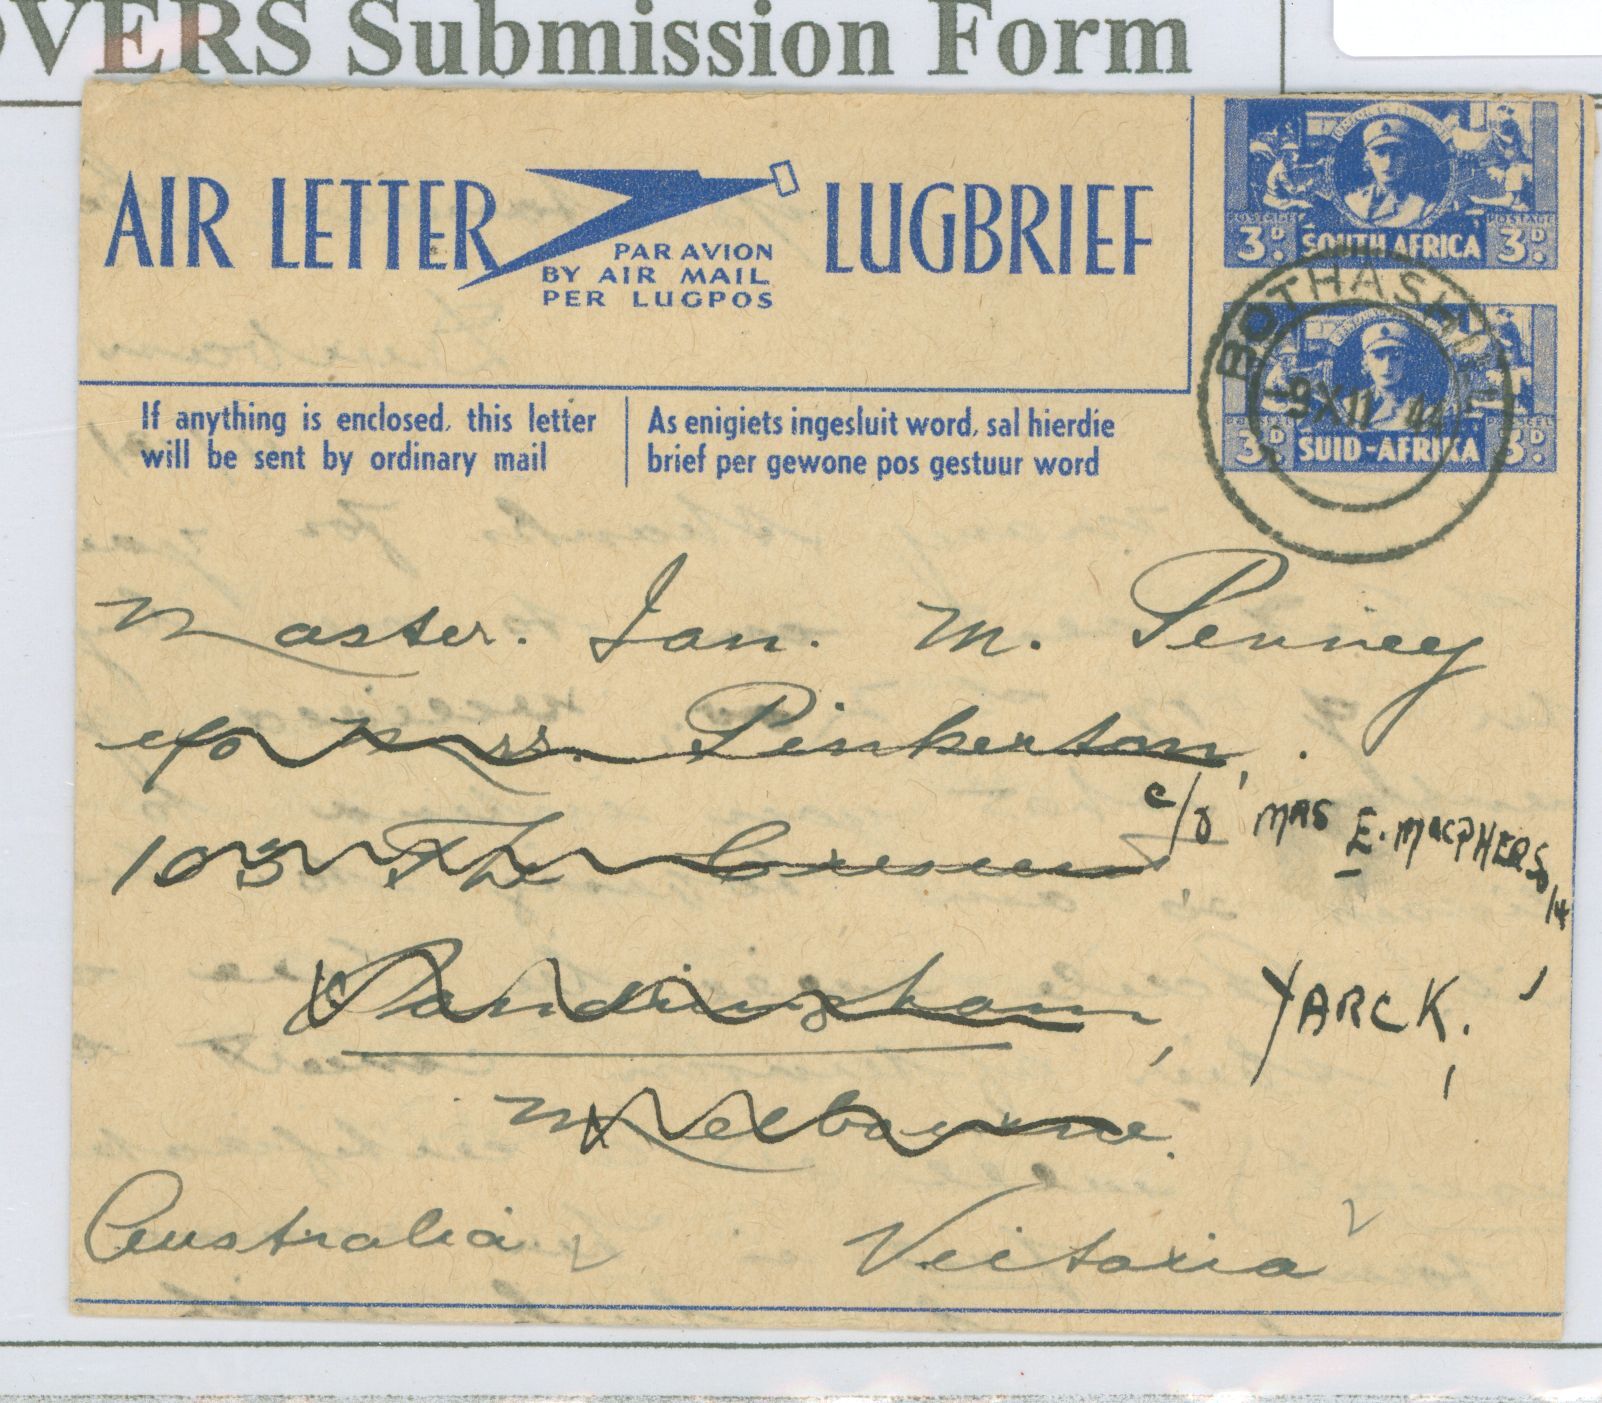 OVERS Submission Form
AIR LETTER
PAR AVION
BY AIR MAIL
PER LUGPOS
LUGBRIEF
POSTAGE POSTAGE
3D. SOUTH AFRICA 3D.
BOTHASHILL
9 XII 44
3D. SUID-AFRIKA 3D.
If anything is enclosed, this letter
will be sent by ordinary mail
As enigiets ingesluit word, sal hierdie
brief per gewone pos gestuur word
Master. Ian. M. Penney
c/o Mrs. Pinkerton,
c/o MRS E. MACPHERSON
103 The Crescent
Sandringham,
YARCK.
Melbourne.
Australia Victoria